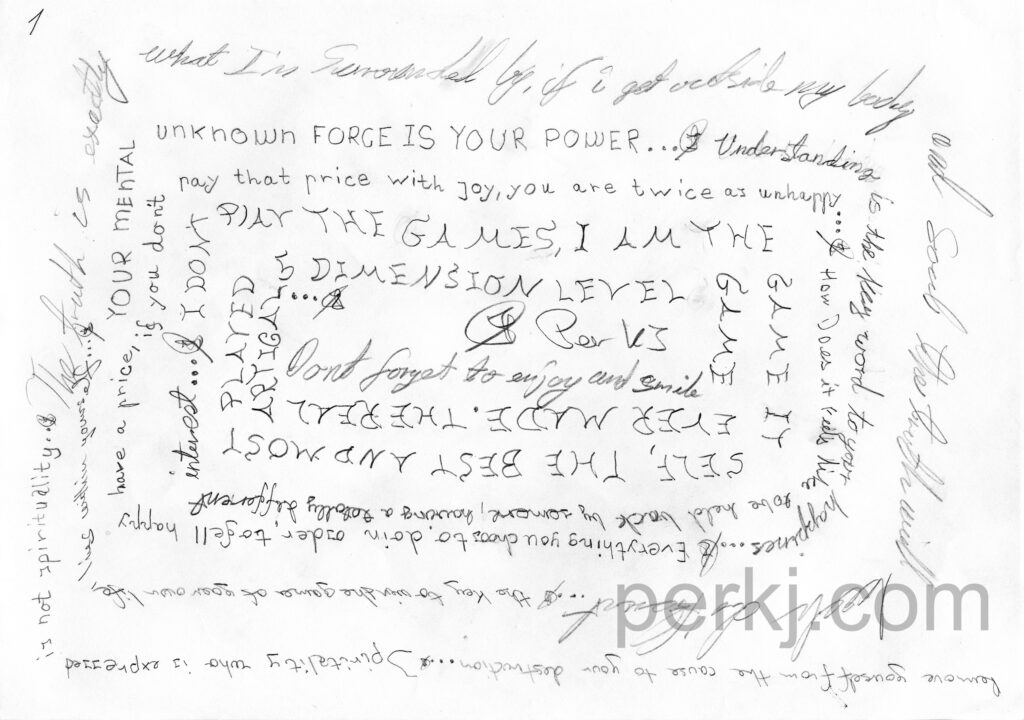 1
what I'm Surrounded by, if i get outside my body
and soul the truth will
Remove yourself from the cause to your destruction....
Spirituality who is expressed
is not spirituality...
The truth is exactly
UNKNOWN FORCE IS YOUR POWER...
Understanding is the key word to your happines....
Everything you choose to doin order, to fell happy
if you dont
pay that price with joy, you are twice as unhally...
How Does it feels like
to be held back by somone, having a totally different
interest...
I DONT
PLAY THE GAMES, I AM THE
GAME IT
SELF, THE BEST AND MOST
PLAYED
GAME
EVER MADE. THE REAL
ARTICAL
5 DIMENSION LEVEL
...
Per KJ
Dont forget to enjoy and smile
have a price, YOUR MENTAL
lies within yourself...
the key to win the game of your own life,
perkj.com